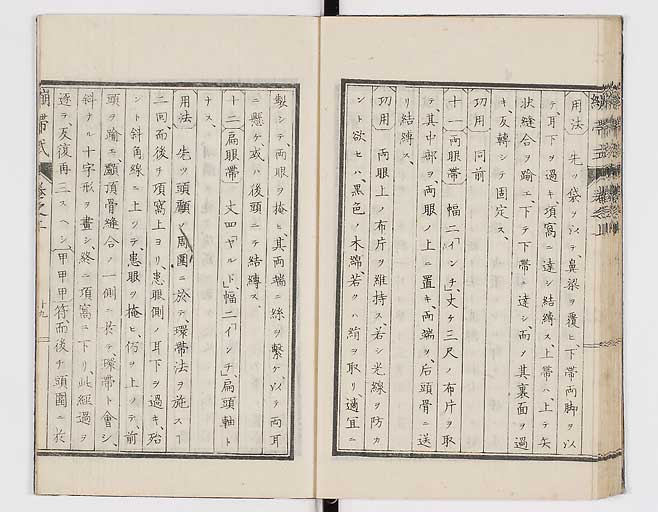 用法 先ツ袋ヲ以テ、鼻梁ヲ覆ヒ、下帯両脚ヲ以
テ耳下ヲ過キ、項窩ニ達シ結縛ス、上帯ハ、上テ矢
状縫合ヲ踰エ、下テ下帯ニ達シ、而〆其裏面ヲ過
キ、反轉シテ固定ス、
功用 同前
十一 両眼帯 幅二「インチ」丈ケ三尺ノ布片ヲ取
テ、其中部ヲ、両眼ノ上ニ置キ、両端ヲ、后頭骨ニ送
リ結縛ス、
功用 両眼上ノ布片ヲ維持ス、若シ光線ヲ防カ
ント欲セハ、黒色ノ木綿、若クハ絹ヲ取リ、適宜ニ
製シテ、両眼ヲ掩ヒ、其両端ニ絲ヲ繋ケ、以テ両耳
ニ懸ケ、或ハ後頭ニテ結縛ス、
十二 扁眼帯 丈四「ヤルド」、幅二「インチ」、扁頭軸ト
ナス、
用法 先ツ頭顱ノ周圍ニ於テ、環帯法ヲ施スー
二両而後チ項窩上ヨリ、患眼側ノ耳下ヲ過キ、殆
ント斜角線ニ上リテ、患眼ヲ掩ヒ、上ノテ、前
頭ヲ踰エ、顱頂骨縫合ノ一側ニ於テ、環帯ト會シ、
斜ナル十字形ヲ畫シ、終ニ項窩ニ下リ、此経過ヲ
逐ヲ、反復再三スヘシ、甲甲甲符而後チ頭圍ニ於
繃帯式 巻之上 十九